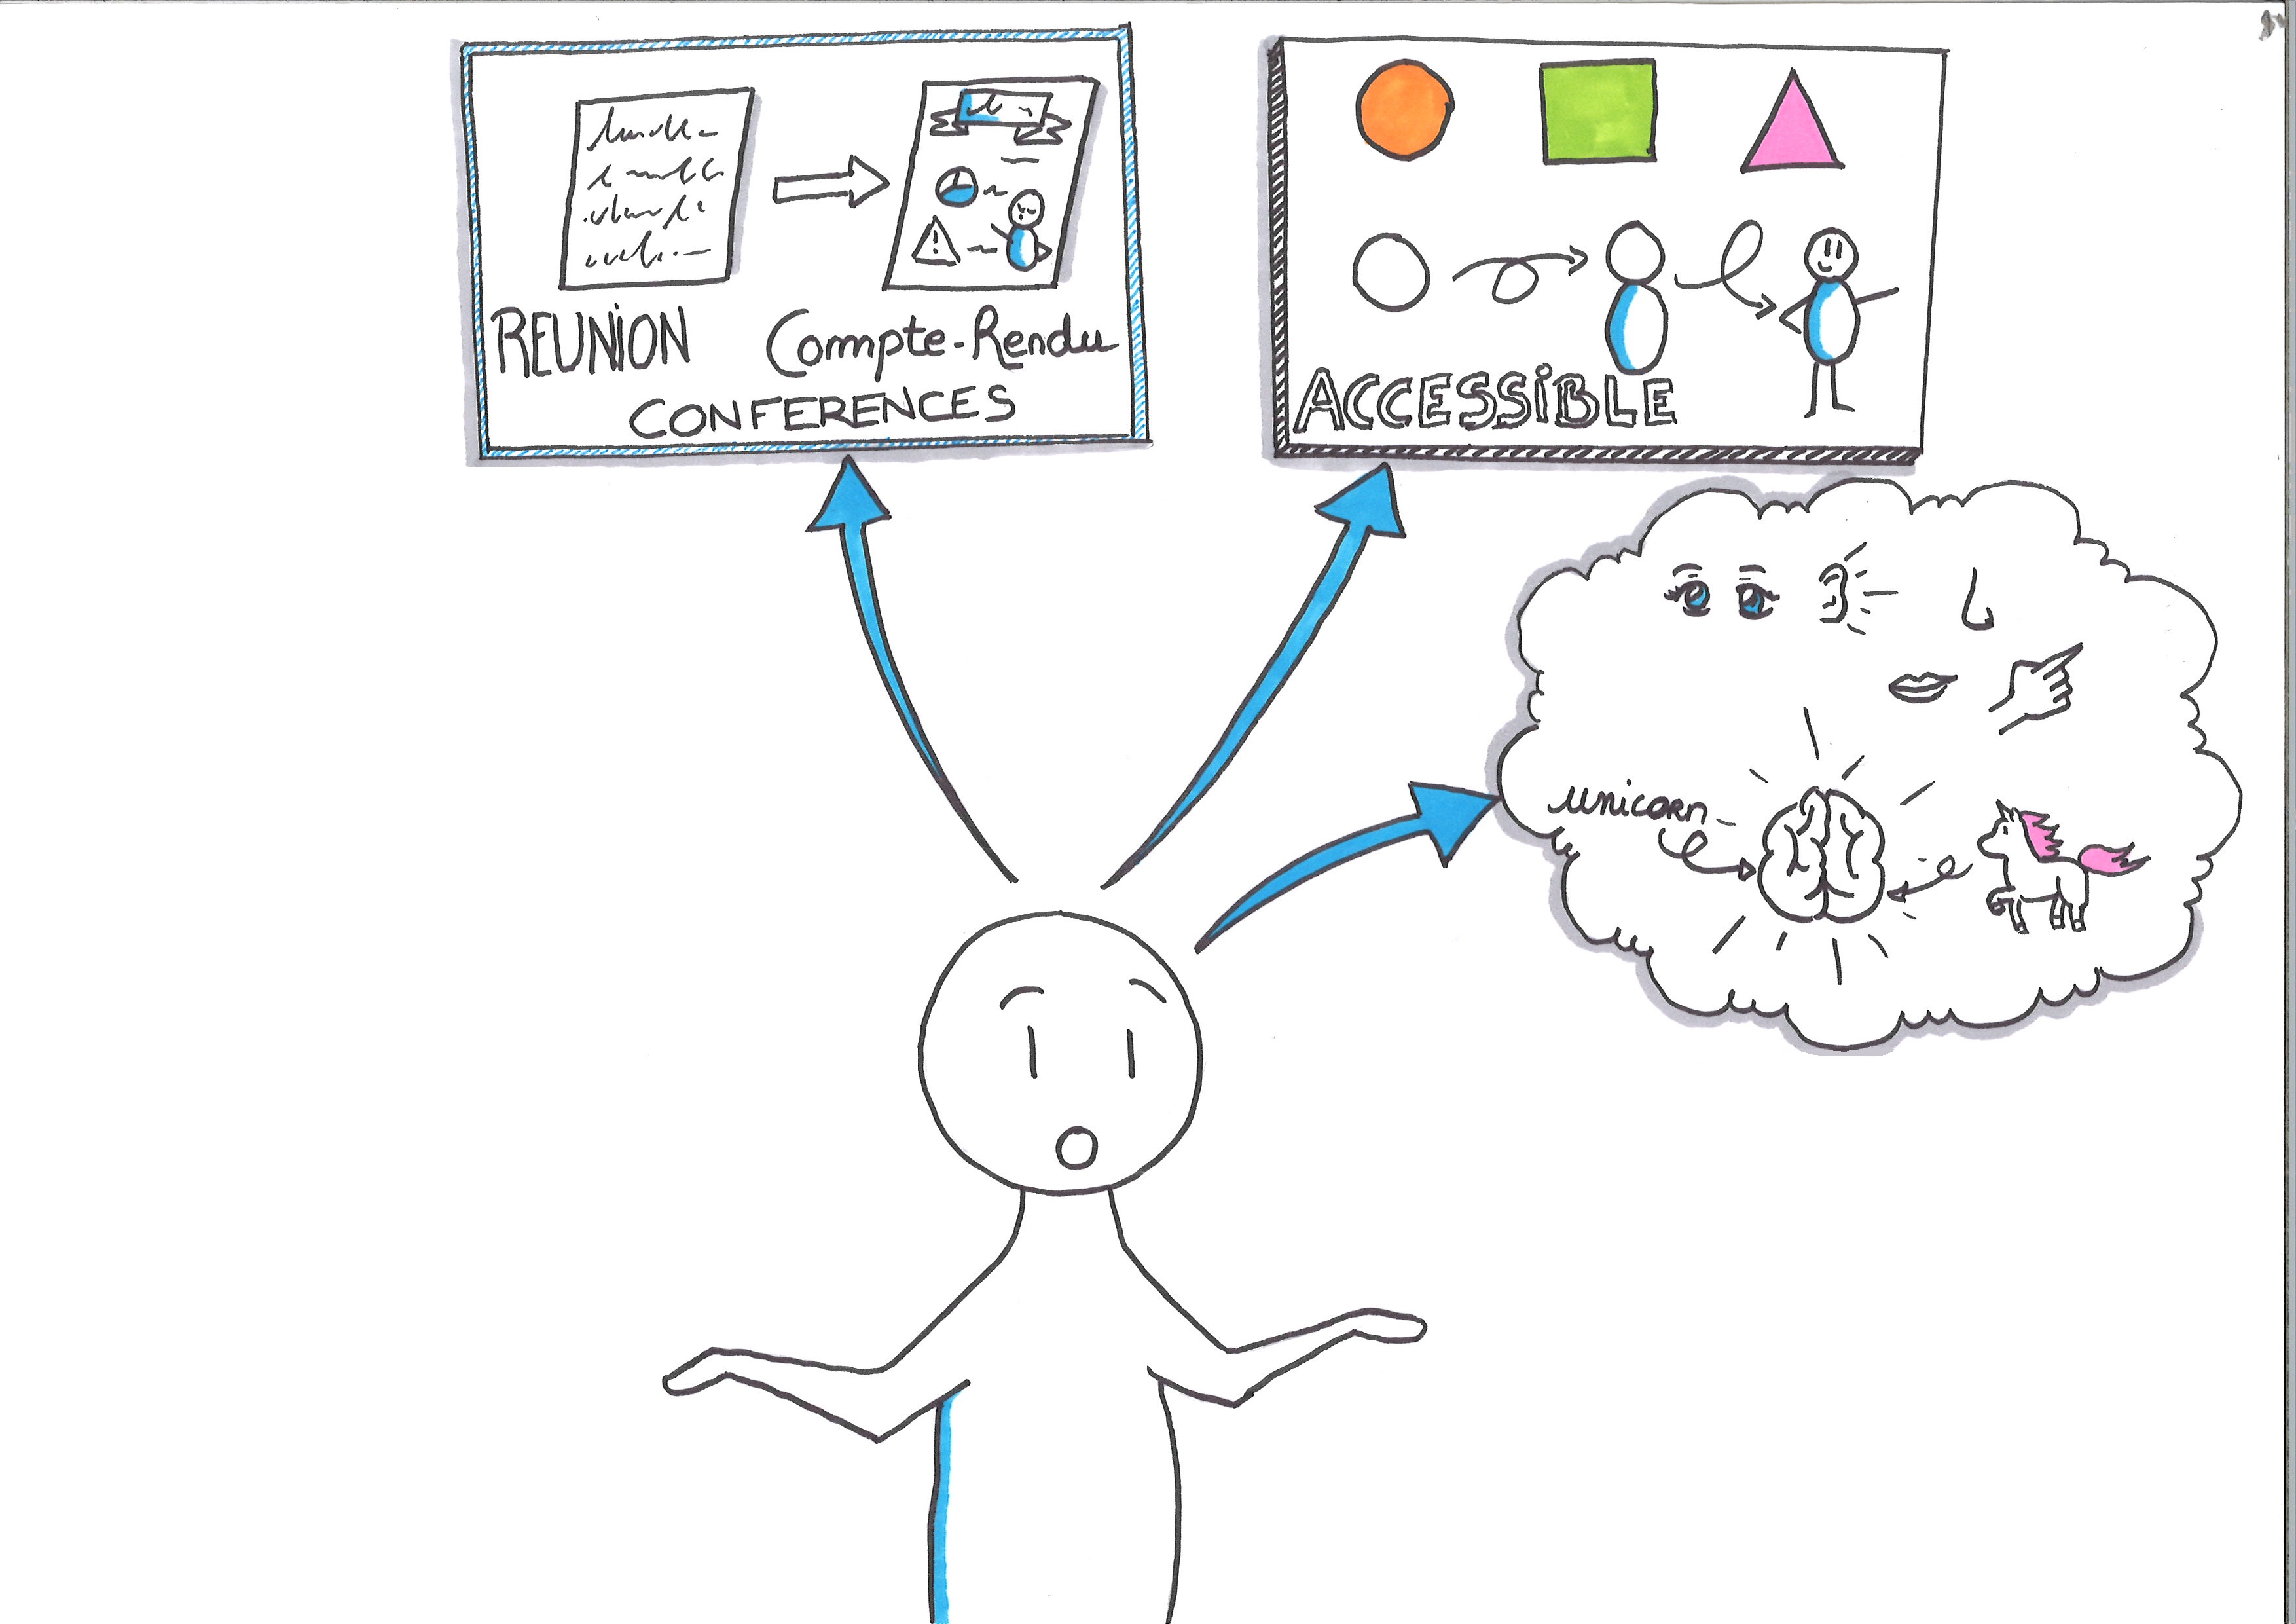 REUNION
Compte-Rendu
CONFERENCES
ACCESSIBLE
unicorn